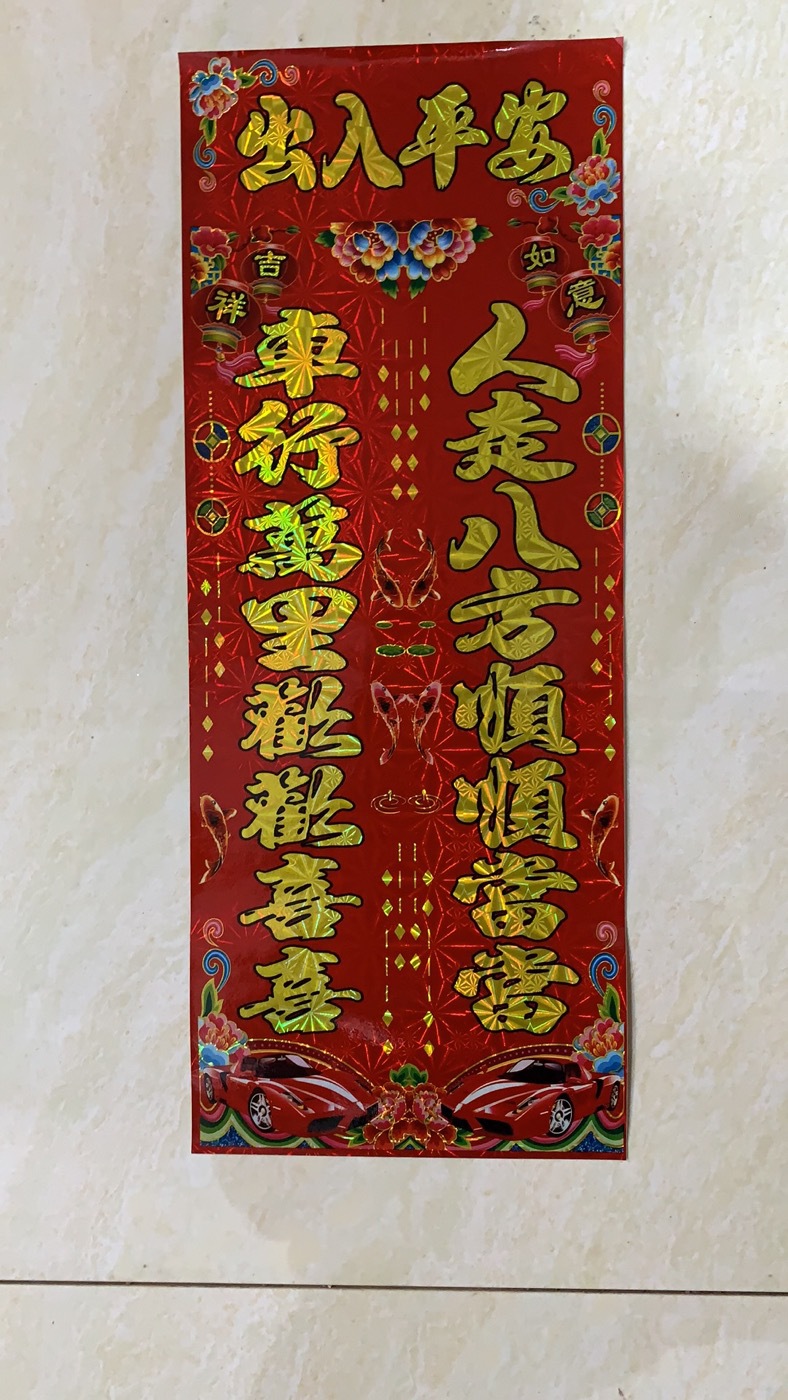 出入平安
吉祥
如意
人走八方順順當當
車行萬里歡歡喜喜